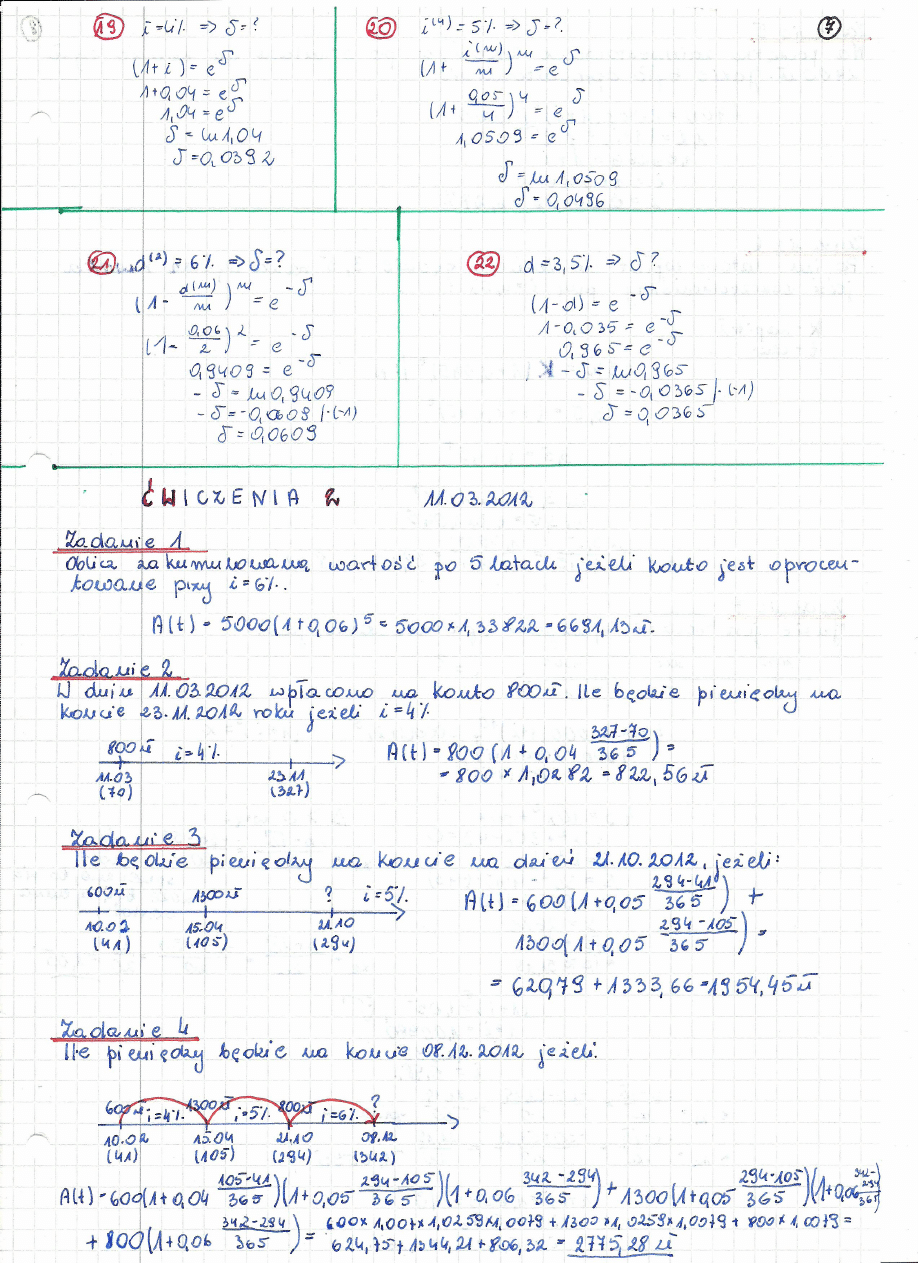 19 i=4% => δ=?
(1+i) = e^δ
1+0,04 = e^δ
1,04 = e^δ
δ = ln 1,04
δ = 0,0392
20 i^(4) = 5% => δ=?
7
(1+ i^(m)/m)^m = e^δ
(1+ 0,05/4)^4 = e^δ
1,0509 = e^δ
δ = ln 1,0509
δ = 0,0496
21. d^(2) = 6% => δ=?
(1- d^(m)/m)^m = e^-δ
(1- 0,06/2)^2 = e^-δ
0,9409 = e^-δ
-δ = ln 0,9409
-δ = -0,0609 |·(-1)
δ = 0,0609
22 d=3,5% => δ?
(1-d) = e^-δ
1-0,035 = e^-δ
0,965 = e^-δ
-δ = ln 0,965
-δ = -0,0365 |·(-1)
δ = 0,0365
ĆWICZENIA 2 11.03.2012
Zadanie 1
Oblicz zakumulowaną wartość po 5 latach jeżeli konto jest oprocen-
towane przy i=6%.
A(t) = 5000(1+0,06)^5 = 5000*1,33822 = 6691,13zł.
Zadanie 2
W dniu 11.03.2012 wpłacono na konto 800zł. Ile będzie pieniędzy na
koncie 23.11.2012 roku jeżeli i=4%
800zł i=4%
11.03 23.11
(70) (327)
A(t) = 800 (1 + 0,04 327-70/365) =
= 800 * 1,0282 = 822,56zł
Zadanie 3
Ile będzie pieniędzy na koncie na dzień 21.10.2012, jeżeli:
600zł 1300zł ? i=5%
10.02 15.04 21.10
(41) (105) (294)
A(t) = 600(1+0,05 294-41/365) +
1300(1+0,05 294-105/365) =
= 620,79 + 1333,66 = 1954,45zł
Zadanie 4
Ile pieniędzy będzie na koncie 08.12.2012 jeżeli:
600zł i=4% 1300zł i=5% 800zł i=6% ?
10.02 15.04 21.10 08.12
(41) (105) (294) (342)
A(t) = 600(1+0,04 105-41/365)(1+0,05 294-105/365)(1+0,06 342-294/365) + 1300(1+0,05 294-105/365)(1+0,06 342-294/365)
+ 800(1+0,06 342-294/365) = 600*1,007*1,0259*1,0079 + 1300*1,0259*1,0079 + 800*1,0079 =
624,75 + 1344,21 + 806,32 = 2775,28 zł